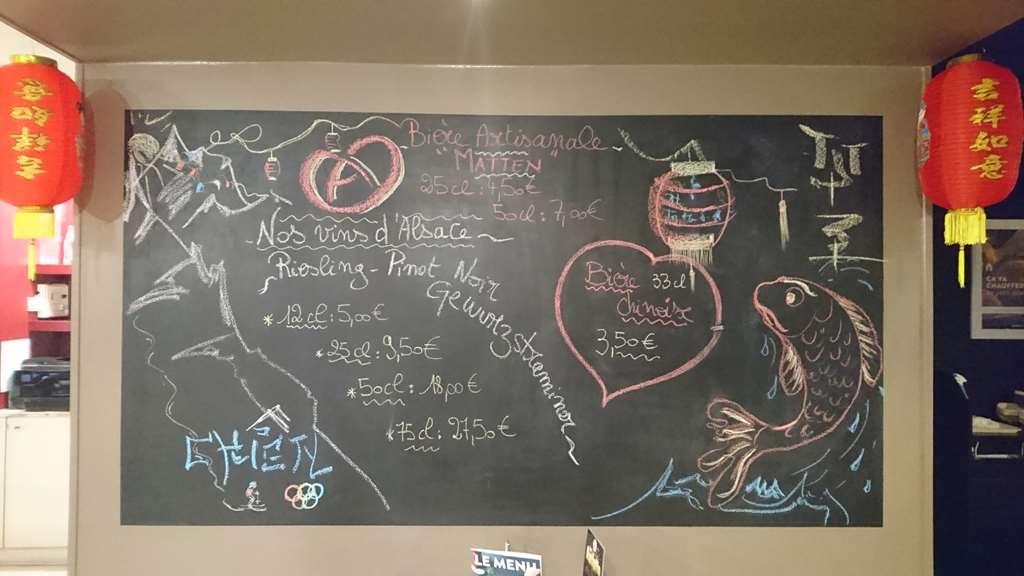 Bière Artisanale
"MATTEN"
25cl : 4,50€
50cl : 7,00€
Nos vins d'Alsace
Riesling - Pinot Noir
Gewurzstraminer
* 12cl : 5,00€
* 25cl : 9,50€
* 50cl : 18,00€
* 75cl : 27,50€
Bière 33cl
Chinois
3,50€
吉祥如意
LE MENU